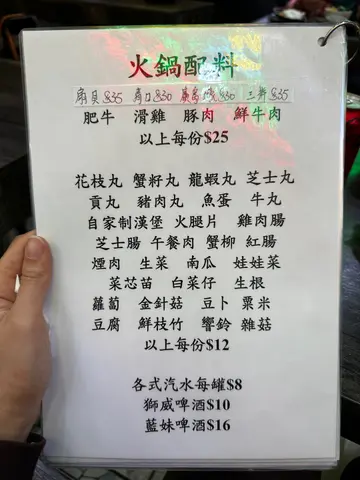 火鍋配料
扇貝$35 青口$30 廣島蠔$30 三鮮$35
肥牛 滑雞 豚肉 鮮牛肉
以上每份$25
花枝丸 蟹籽丸 龍蝦丸 芝士丸
貢丸 豬肉丸 魚蛋 牛丸
自家制漢堡 火腿片 雞肉腸
芝士腸 午餐肉 蟹柳 紅腸
煙肉 生菜 南瓜 娃娃菜
菜芯苗 白菜仔 生根
蘿蔔 金針菇 豆卜 粟米
豆腐 鮮枝竹 響鈴 雜菇
以上每份$12
各式汽水每罐$8
獅威啤酒$10
藍妹啤酒$16